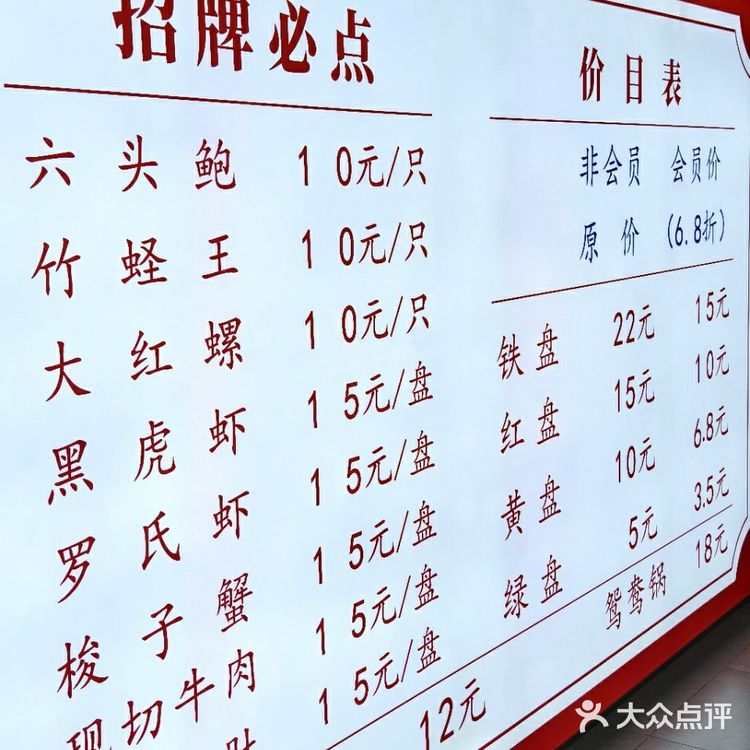 招牌必点
六头鲍 10元/只
竹蛏王 10元/只
大红螺 10元/只
黑虎虾 15元/盘
罗氏虾 15元/盘
梭子蟹 15元/盘
现切牛肉 15元/盘
15元/盘
12元
价目表
非会员 会员价
原价 (6.8折)
铁盘 22元 15元
红盘 15元 10元
黄盘 10元 6.8元
绿盘 5元 3.5元
鸳鸯锅 18元
大众点评